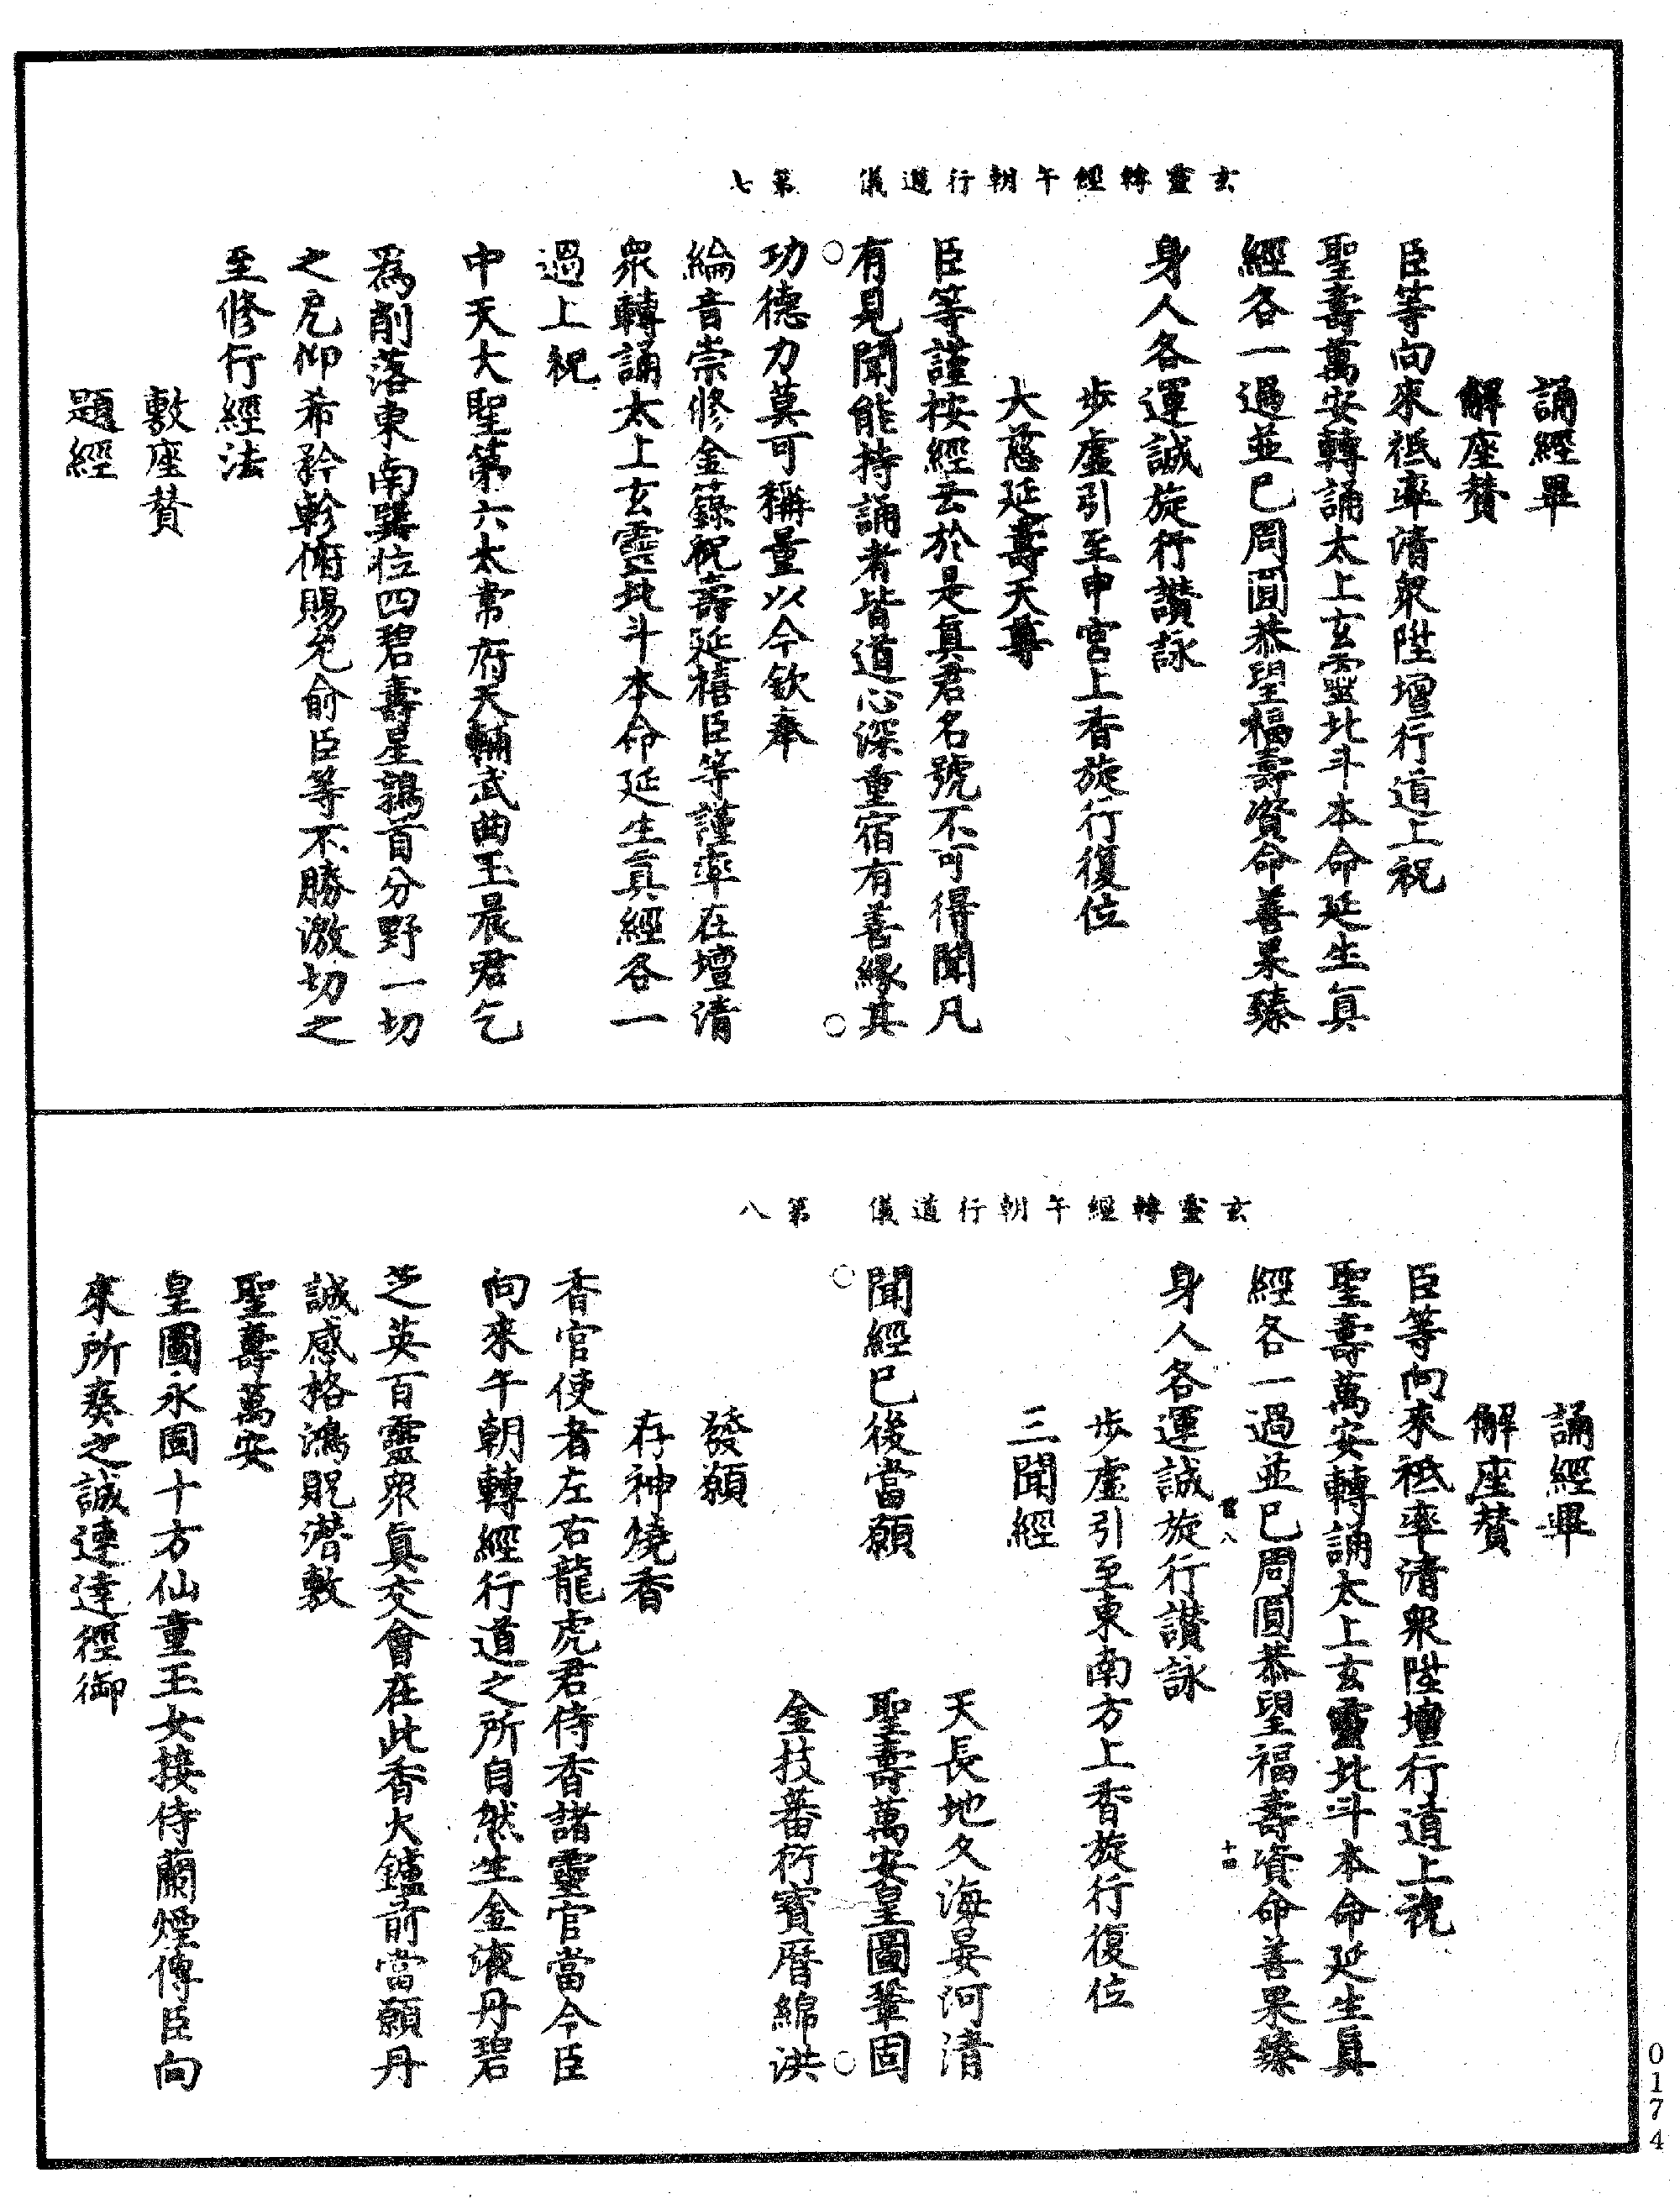 玄靈轉經午朝行道儀　第七
誦經畢
解座贊
臣等向來祗率清眾陞壇行道上祝
聖壽萬安轉誦太上玄靈北斗本命延生真
經各一過並已周圓恭望福壽資命善果臻
身人各運誠旋行讚詠
步虛引至申宮上香旋行復位
大慈延壽天尊
臣等謹按經云於是真君名號不可得聞凡
有見聞能持誦者皆道心深重宿有善緣其
功德力莫可稱量以今欽奉
綸音崇修金籙祝壽延禧臣等謹率在壇清
眾轉誦太上玄靈北斗本命延生真經各一
過上祝
中天大聖第六太常府天輔武曲玉晨君乞
為削落東南巽位四碧壽星鶉首分野一切
之厄仰希矜軫俯賜允俞臣等不勝激切之
至修行經法
敷座贊
題經
玄靈轉經午朝行道儀　第八
誦經畢
解座贊
臣等向來祗率清眾陞壇行道上祝
聖壽萬安轉誦太上玄靈北斗本命延生真
經各一過並已周圓恭望福壽資命善果臻
八　十四
身人各運誠旋行讚詠
步虛引至東南方上香旋行復位
三聞經
天長地久海晏河清
聞經已後當願　聖壽萬安皇圖鞏固
金技蕃衍寶曆綿洪
發願
存神燒香
香官使者左右龍虎君侍香諸靈官當令臣
向來午朝轉經行道之所自然生金液丹碧
芝英百靈眾真交會在此香火鑪前當願丹
誠感格鴻貺潛敷
聖壽萬安
皇圖永固十方仙童玉女接侍蘭煙傳臣向
來所奏之誠速達徑御
0174